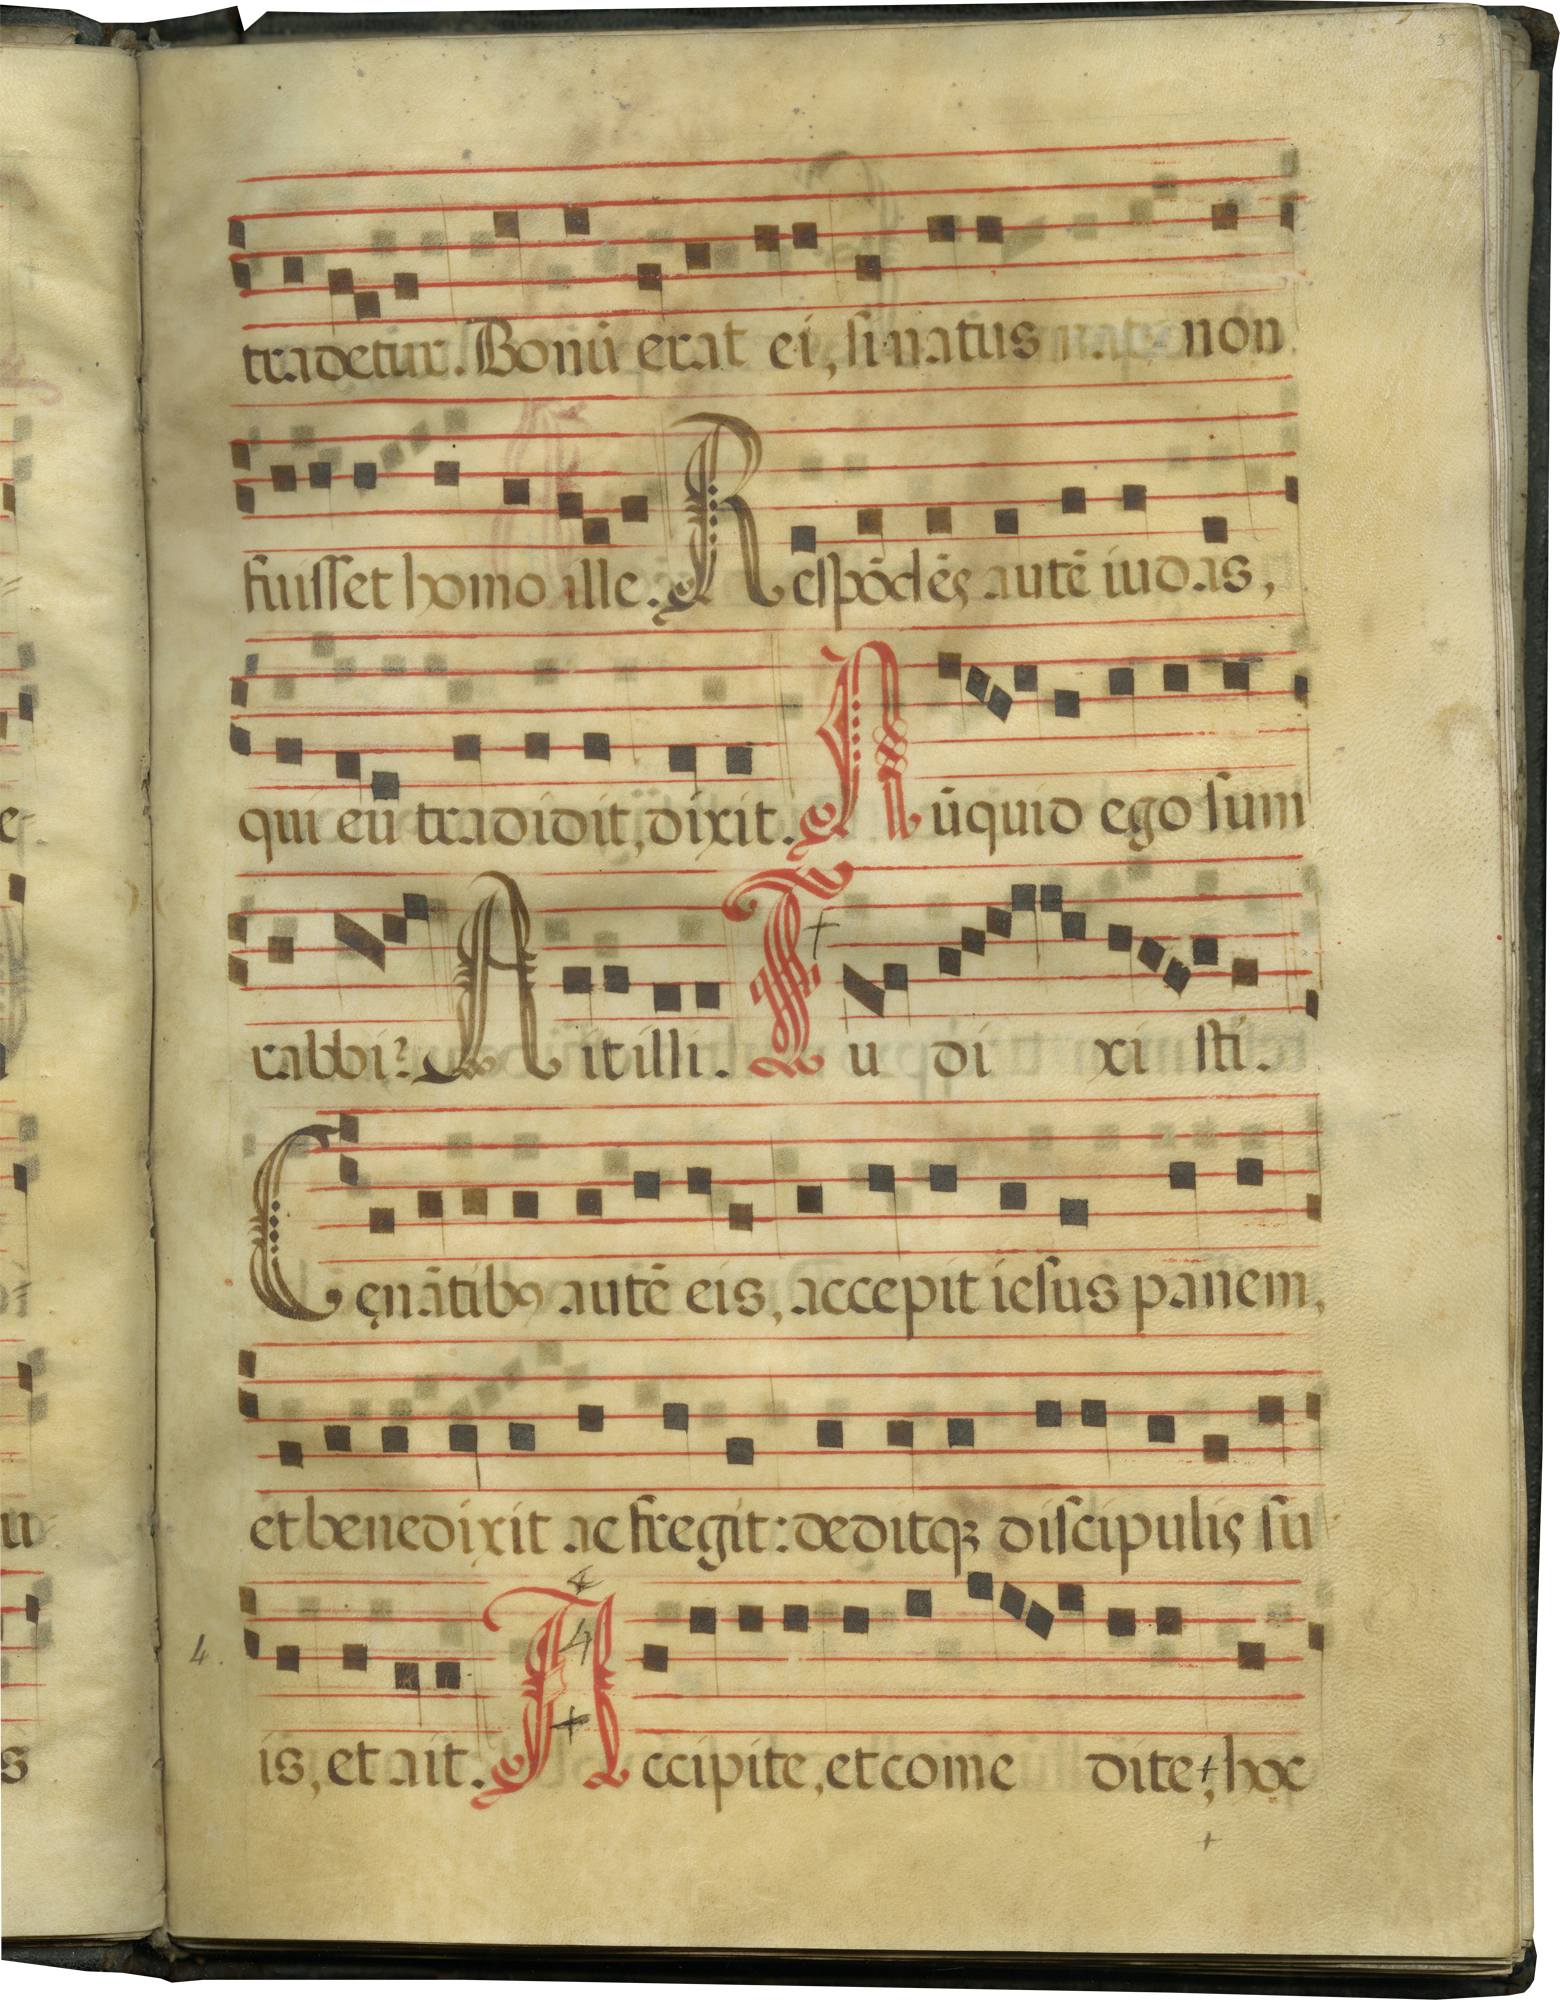 tradetur. Bonū erat ei, si natus non
fuisset homo ille. Respōdēs autē iudas,
qui eū tradidit, dixit. Nūquid ego sum
rabbi? Ait illi. Tu di xi sti.
Cęnātibꝰ autē eis, accepit iesus panem,
et benedixit ac fregit: deditqꝫ discipulis su
4.
is, et ait. Accipite, et come dite, hoc